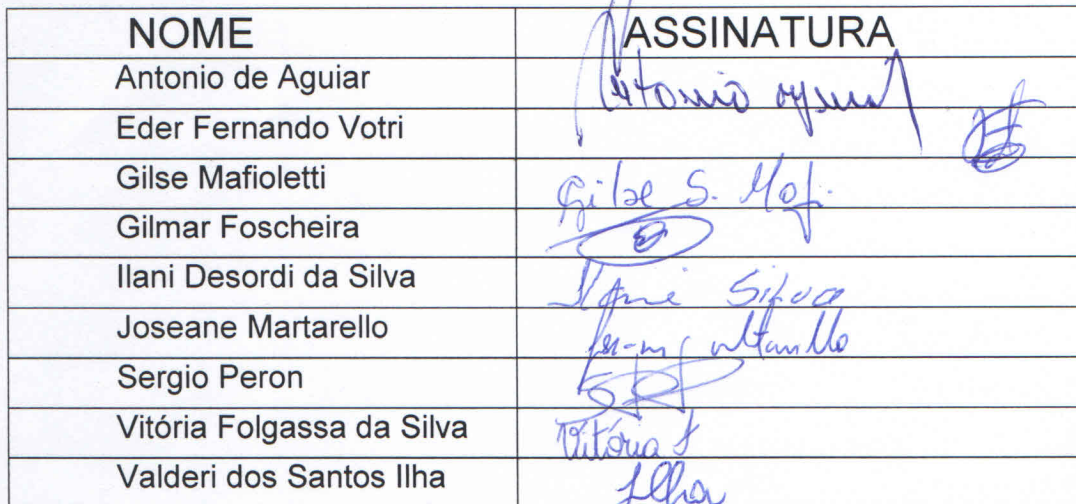 NOME ASSINATURA
Antonio de Aguiar Antonio
Eder Fernando Votri
Gilse Mafioletti Gilse S. Maf.
Gilmar Foscheira
Ilani Desordi da Silva Ilani Silva
Joseane Martarello
Sergio Peron
Vitória Folgassa da Silva Vitória F
Valderi dos Santos Ilha Ilha